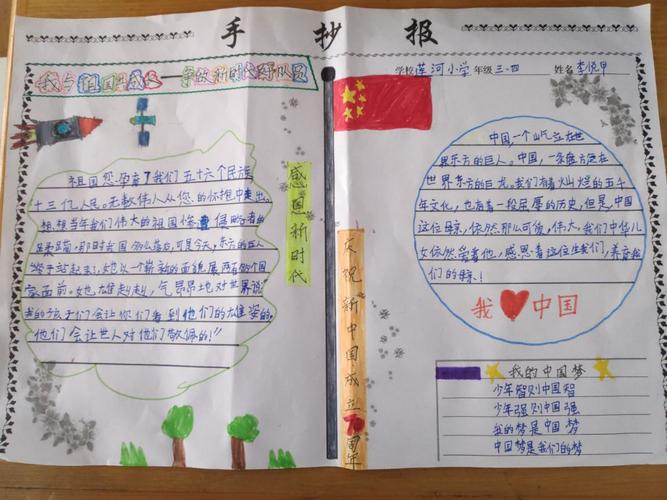 手抄报
我与祖国共成长——争做新时代好队员
学校莲河小学年级三.四 姓名李悦甲
祖国您孕育了我们五十六个民族
十三亿人民。无数伟人从您的怀抱中走出。
想想当年我们伟大的祖国惨遭侵略者的
那时我国那么落后,可是今天,东方的巨人
终于站起来了,她以一个崭新的面貌展两在别个国
家面前。她雄赳赳,气昂昂地对世界说
我的孩子们会让你们看到他们的雄姿的,
他们会让世人对他们敬佩的!”
感恩新时代
庆祝新中国成立70周年
中国,一个屹立在世
界东方的巨人。中国,一条盘旋在
世界东方的巨龙。我们有着灿烂的五千
年文化,也有着一段屈辱的历史,但是,中国
这位母亲,依然那么可俊,伟大。我们中华儿
女依然爱着他,感恩着这位生我们,养育我
们的母亲!
我中国
我的中国梦
少年智则中国智
少年强则中国强
我的梦是中国梦
中国梦是我们的梦